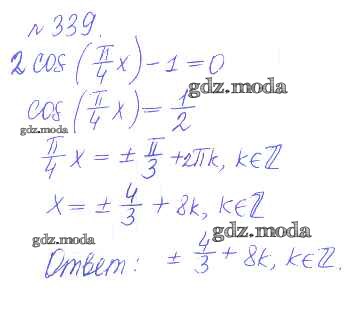 № 339.
2 cos (π/4 x) - 1 = 0
gdz.moda
cos (π/4 x) = 1/2
gdz.moda
π/4 x = ± π/3 + 2πk, k∈ℤ
x = ± 4/3 + 8k, k∈ℤ
gdz.moda
gdz.moda
Ответ: ± 4/3 + 8k, k∈ℤ.